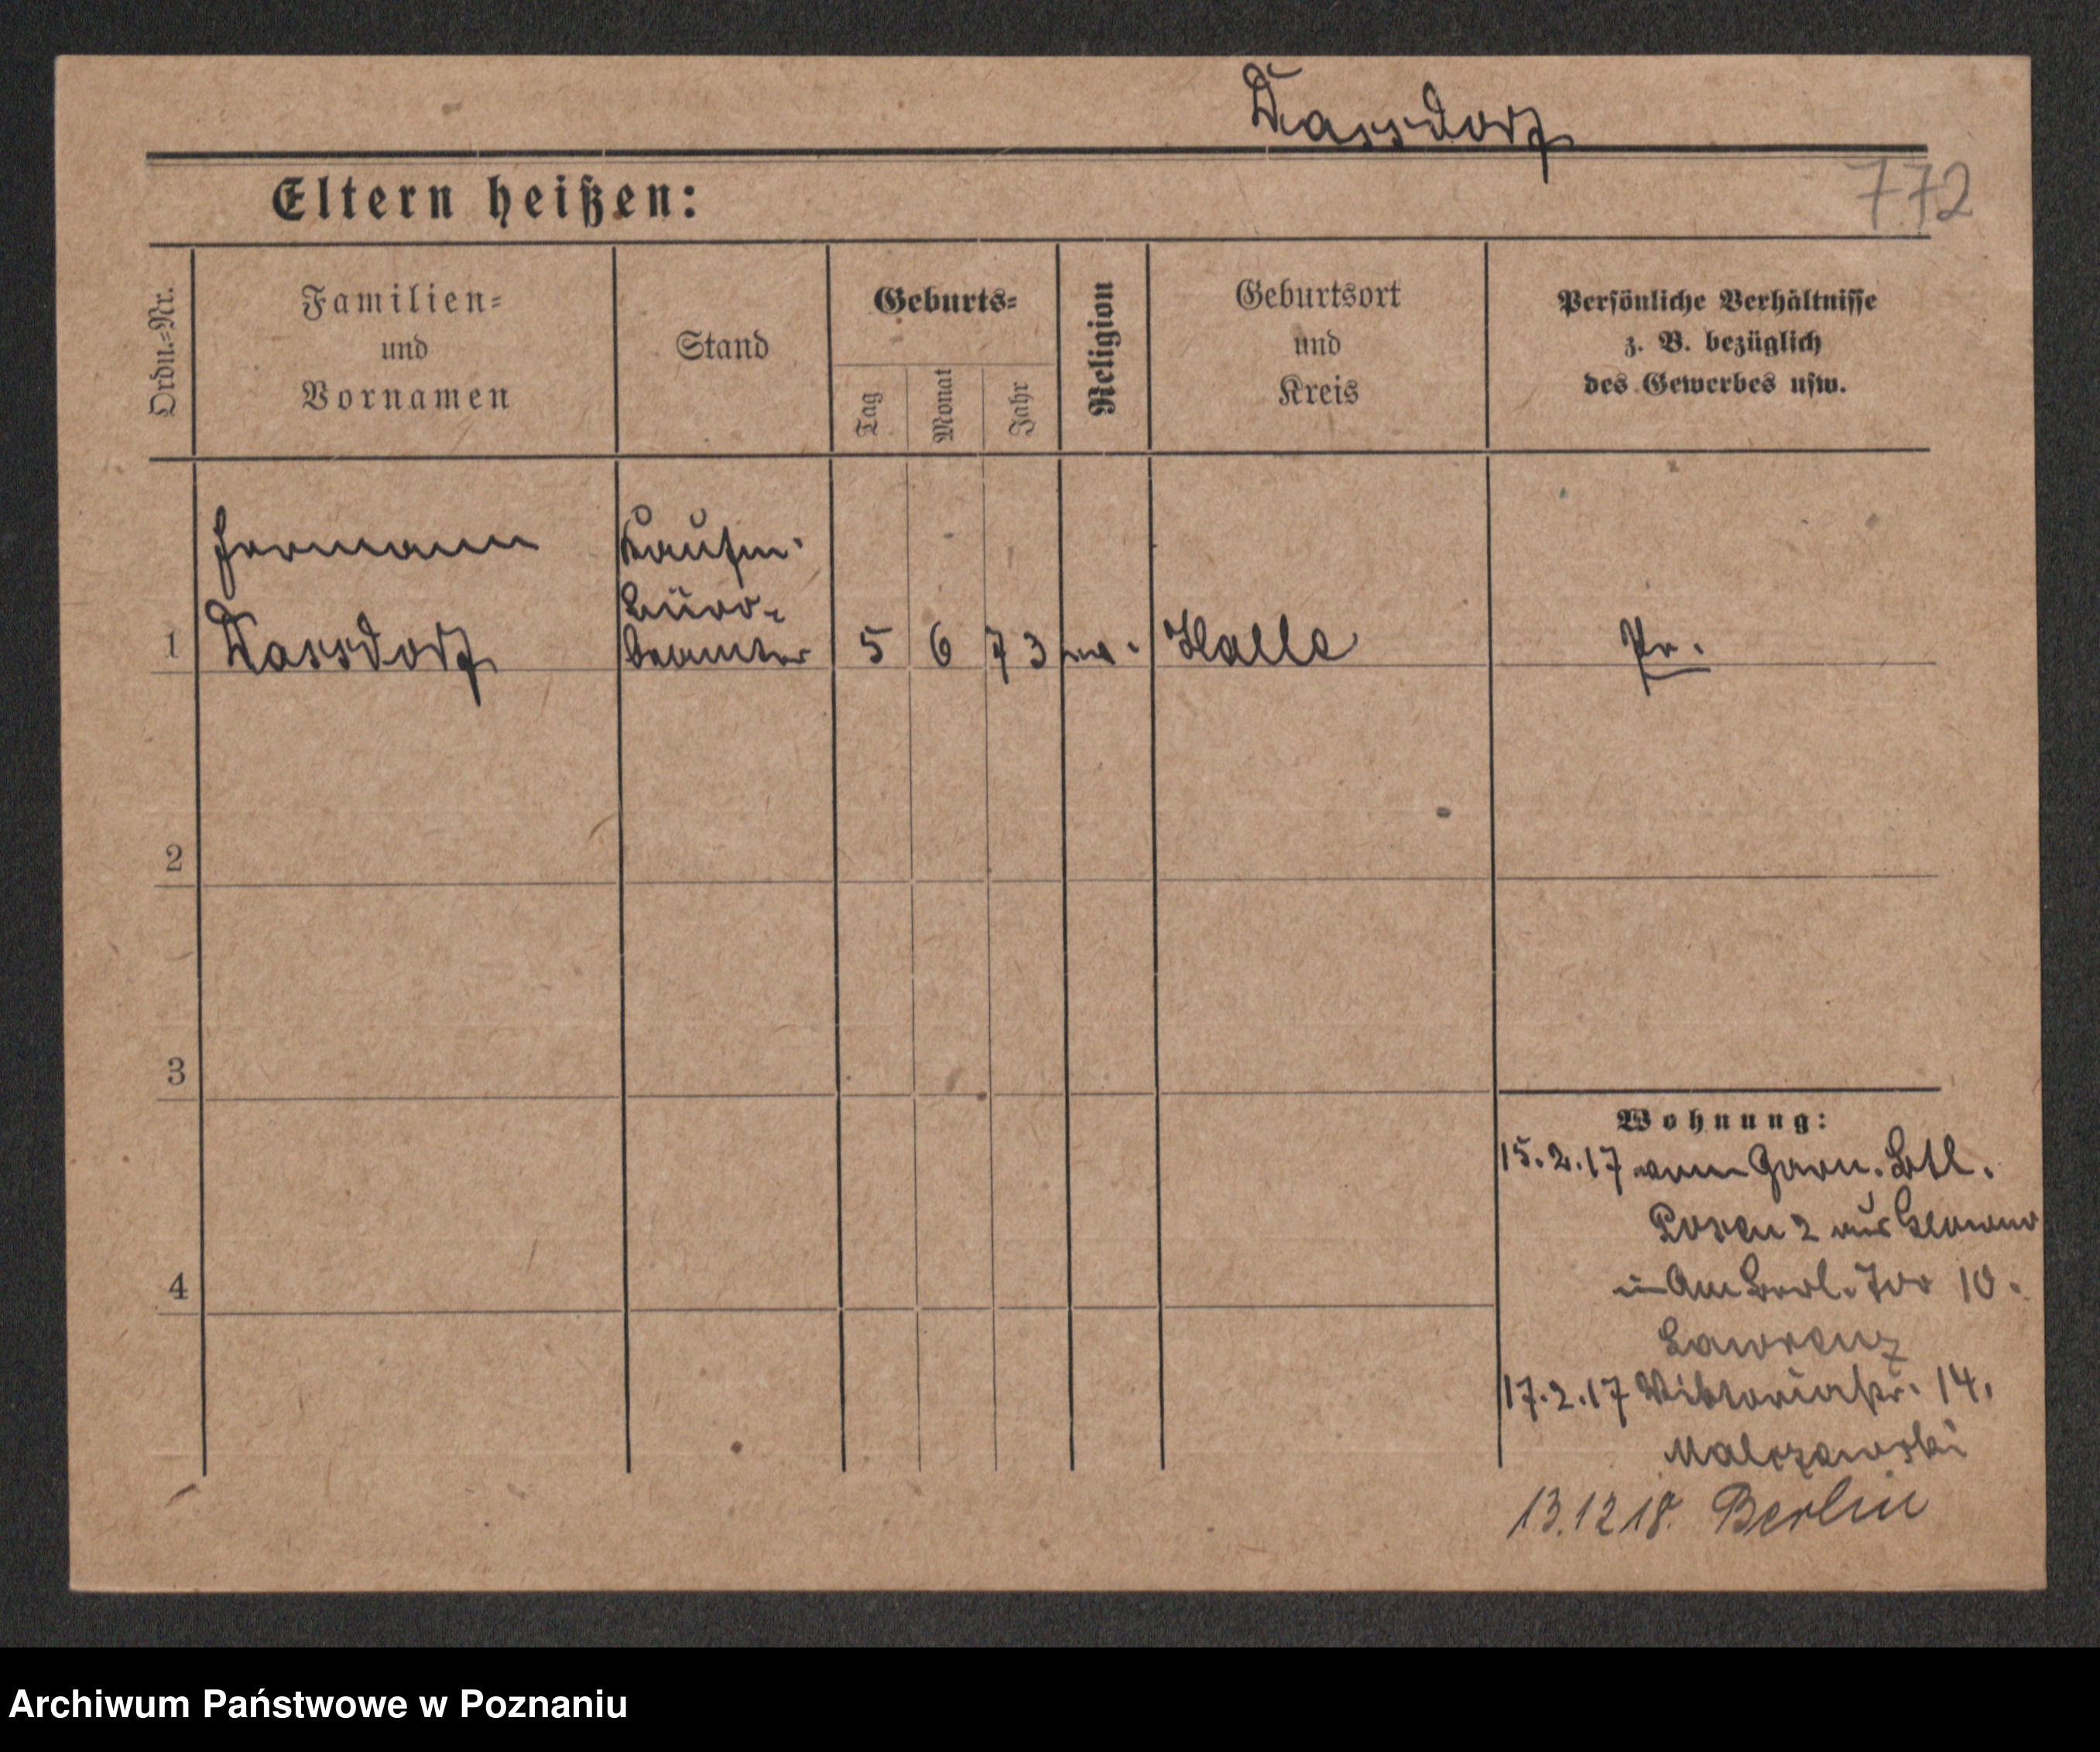 Dassdorf
772
Eltern heißen:
Ordn.-Nr.
Familien-
und
Vornamen
Stand
Geburts-
Tag
Monat
Jahr
Religion
Geburtsort
und
Kreis
Persönliche Verhältnisse
z. B. bezüglich
des Gewerbes usw.
Hermann
Dassdorf
Kaufm.
Büro-
beamter
1
5
6
73
Halle
Pr.
2
3
4
Wohnung:
15.2.17 vom Garn. Btl.
Posen 2 aus Glowno
Am Berl. Tor 10.
Lawrenz
17.2.17 Viktoriastr. 14.
Malczewski
13.12 18. Berlin
Archiwum Państwowe w Poznaniu